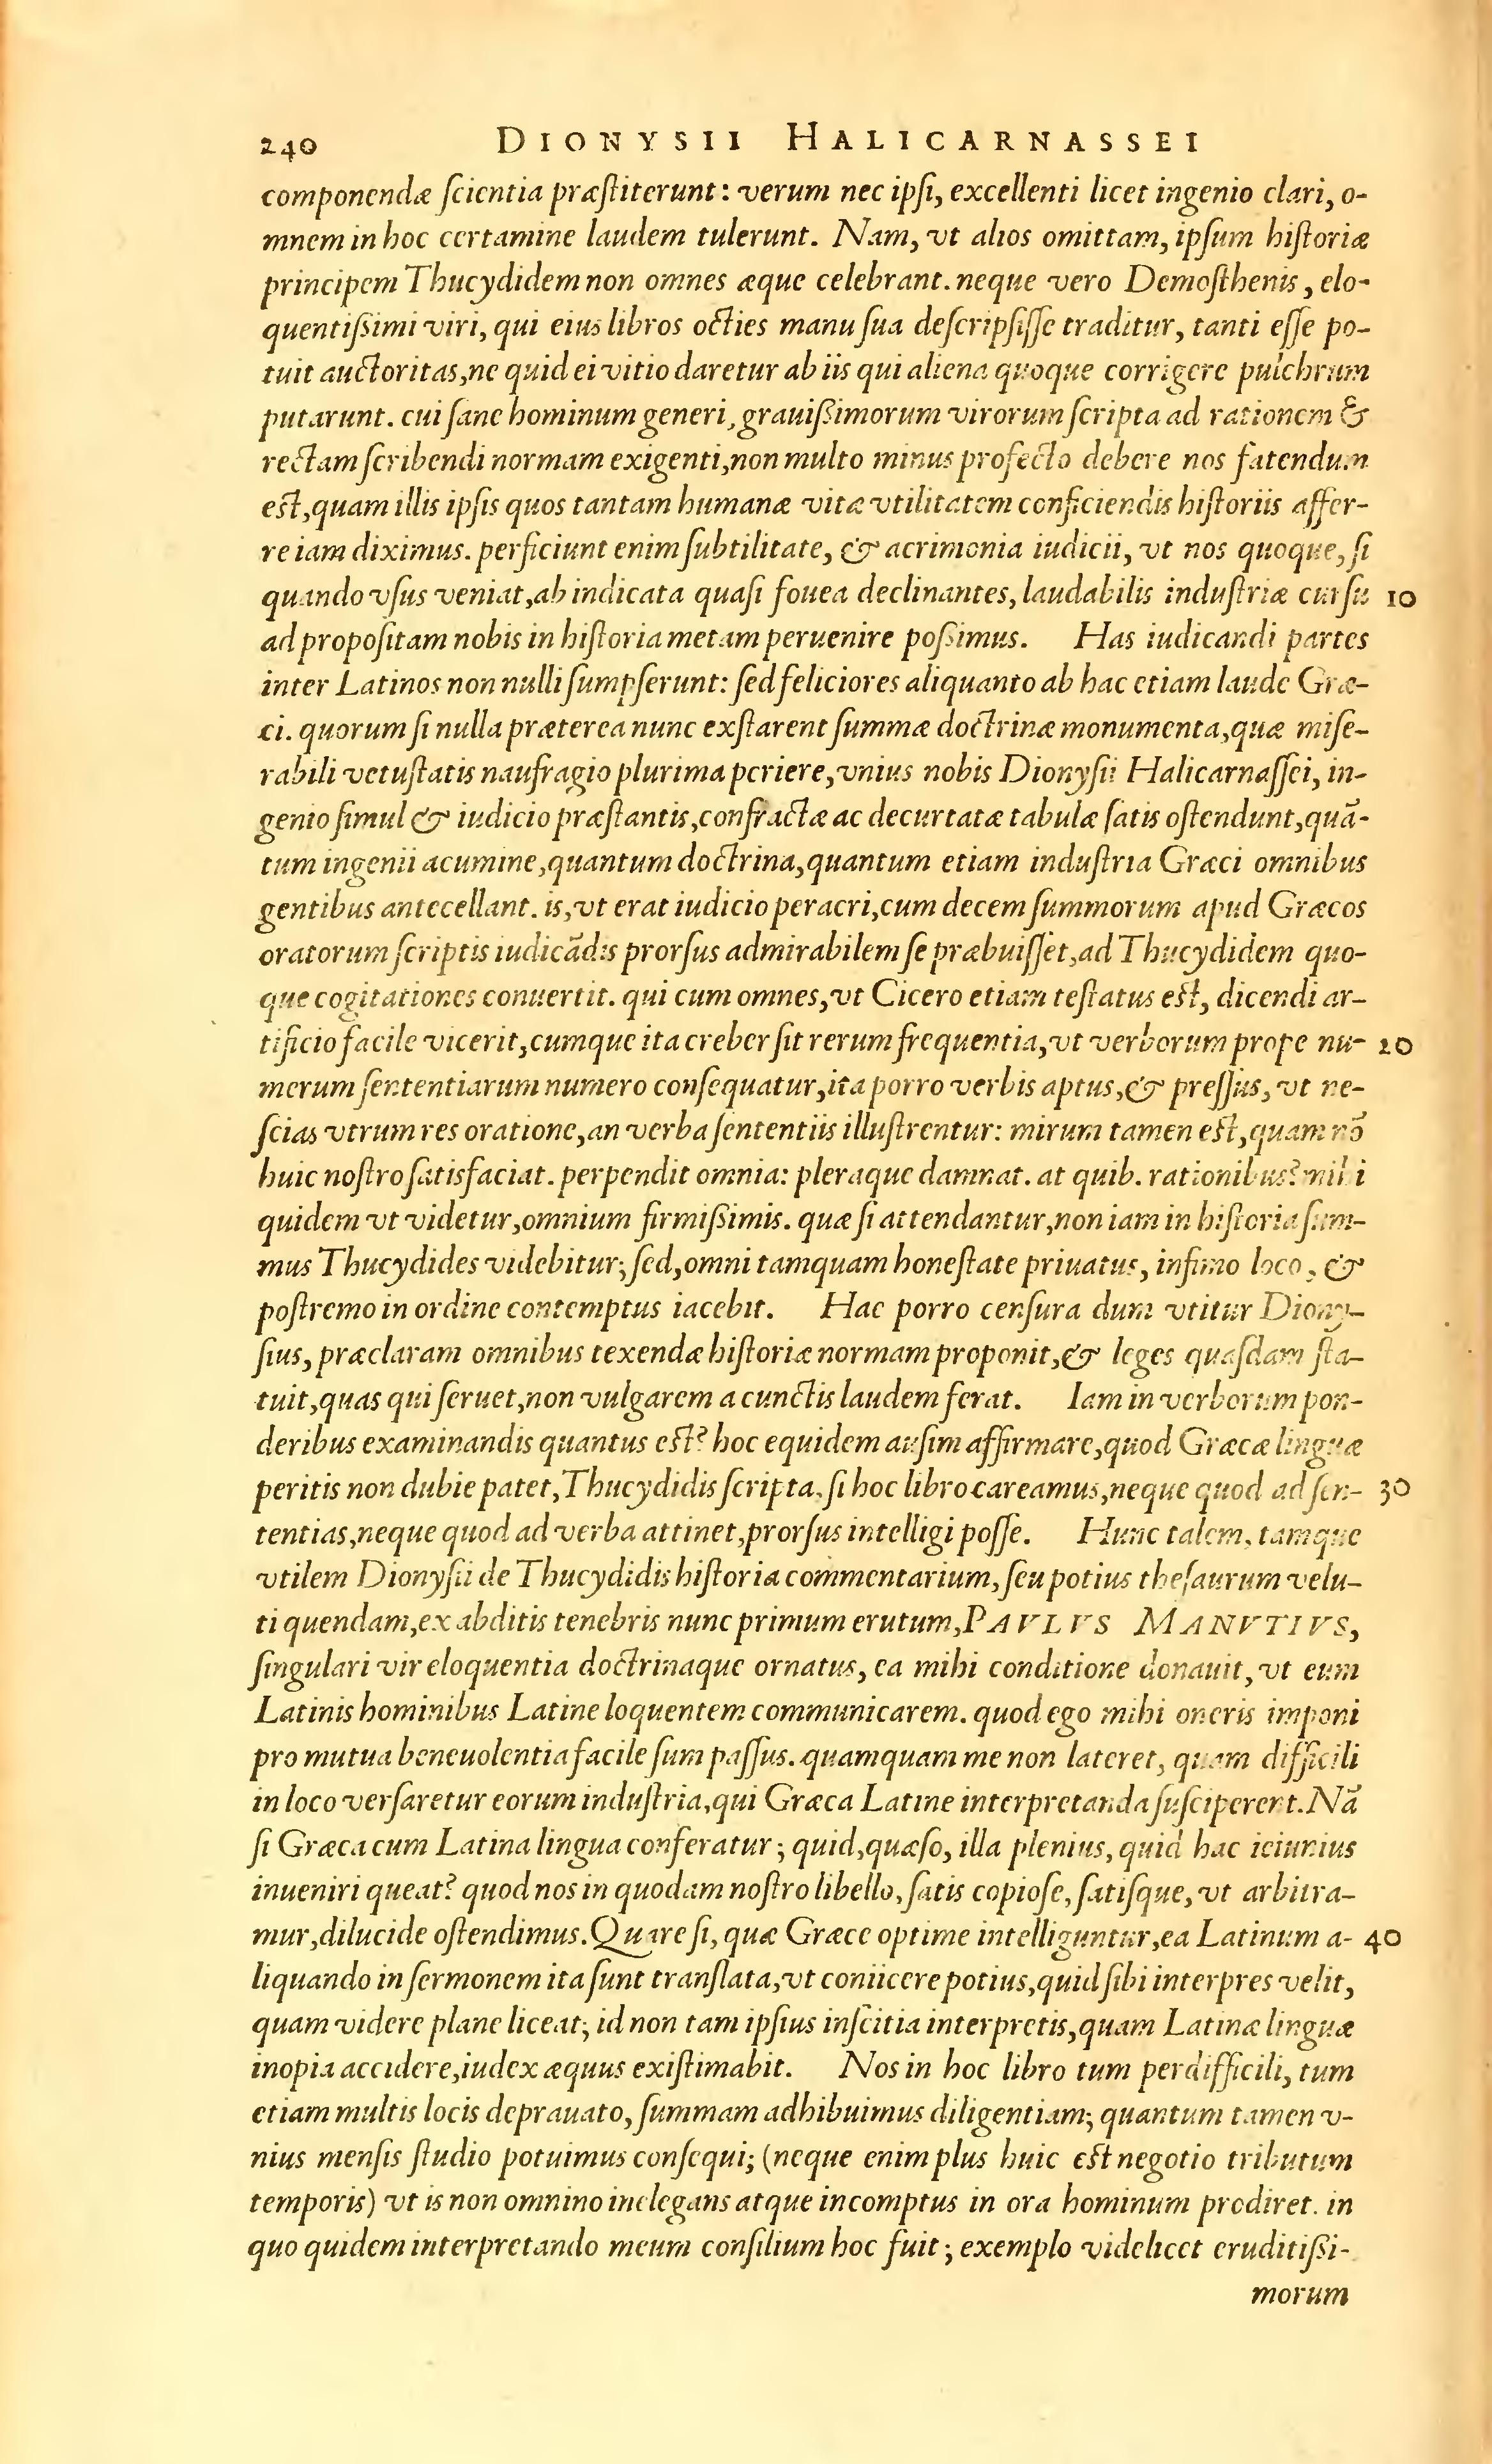 240 DIONYSII HALICARNASSEI
componendæ ſcientia præſtiterunt: verum nec ipſi, excellenti licet ingenio clari, o-
mnem in hoc certamine laudem tulerunt. Nam, vt alios omittam, ipſum hiſtoriæ
principem Thucydidem non omnes æque celebrant. neque vero Demoſthenis, elo-
quentiſsimi viri, qui eius libros octies manu ſua deſcripſiſſe traditur, tanti eſſe po-
tuit auctoritas, ne quid ei vitio daretur ab iis qui aliena quoque corrigere pulchrum
putarunt. cui ſane hominum generi, grauiſsimorum virorum ſcripta ad rationem &
rectam ſcribendi normam exigenti, non multo minus profecto debere nos fatendum
eſt, quam illis ipſis quos tantam humanæ vitæ vtilitatem conficiendis hiſtoriis affer-
re iam diximus. perficiunt enim ſubtilitate, & acrimonia iudicii, vt nos quoque, ſi
quando vſus veniat, ab indicata quaſi fouea declinantes, laudabilis induſtriæ curſu 10
ad propoſitam nobis in hiſtoria metam peruenire poſsimus. Has iudicandi partes
inter Latinos non nulli ſumpſerunt: ſed feliciores aliquanto ab hac etiam laude Græ-
ci. quorum ſi nulla præterea nunc exſtarent ſummæ doctrinæ monumenta, quæ miſe-
rabili vetuſtatis naufragio plurima periere, vnius nobis Dionyſii Halicarnaſſei, in-
genio ſimul & iudicio præſtantis, confractæ ac decurtatæ tabulæ ſatis oſtendunt, quã-
tum ingenii acumine, quantum doctrina, quantum etiam induſtria Græci omnibus
gentibus antecellant. is, vt erat iudicio peracri, cum decem ſummorum apud Græcos
oratorum ſcriptis iudicãdis prorſus admirabilem ſe præbuiſſet, ad Thucydidem quo-
que cogitationes conuertit. qui cum omnes, vt Cicero etiam teſtatus eſt, dicendi ar-
tificio facile vicerit, cumque ita creber ſit rerum frequentia, vt verborum prope nu- 20
merum ſententiarum numero conſequatur, ita porro verbis aptus, & preſſus, vt ne-
ſcias vtrum res oratione, an verba ſententiis illuſtrentur: mirum tamen eſt, quam nõ
huic noſtro ſatisfaciat. perpendit omnia: pleraque damnat. at quib. rationibus? mihi
quidem vt videtur, omnium firmiſsimis. quæ ſi attendantur, non iam in hiſtoria ſum-
mus Thucydides videbitur; ſed, omni tamquam honeſtate priuatus, infimo loco, &
poſtremo in ordine contemptus iacebit. Hac porro cenſura dum vtitur Diony-
ſius, præclaram omnibus texendæ hiſtoriæ normam proponit, & leges quaſdam ſta-
tuit, quas qui ſeruet, non vulgarem a cunctis laudem ferat. Iam in verborum pon-
deribus examinandis quantus eſt? hoc equidem auſim affirmare, quod Græcæ linguæ
peritis non dubie patet, Thucydidis ſcripta, ſi hoc libro careamus, neque quod ad ſen- 30
tentias, neque quod ad verba attinet, prorſus intelligi poſſe. Hunc talem, tamque
vtilem Dionyſii de Thucydidis hiſtoria commentarium, ſeu potius theſaurum velu-
ti quendam, ex abditis tenebris nunc primum erutum, PAVLVS MANVTIVS,
ſingulari vir eloquentia doctrinaque ornatus, ea mihi conditione donauit, vt eum
Latinis hominibus Latine loquentem communicarem. quod ego mihi oneris imponi
pro mutua beneuolentia facile ſum paſſus. quamquam me non lateret, quam difficili
in loco verſaretur eorum induſtria, qui Græca Latine interpretanda ſuſciperent. Nã
ſi Græca cum Latina lingua conferatur; quid, quæſo, illa plenius, quid hac ieiunius
inueniri queat? quod nos in quodam noſtro libello, ſatis copioſe, ſatiſque, vt arbitra-
mur, dilucide oſtendimus. Quare ſi, quæ Græce optime intelliguntur, ea Latinum a- 40
liquando in ſermonem ita ſunt tranſlata, vt coniicere potius, quid ſibi interpres velit,
quam videre plane liceat; id non tam ipſius inſcitia interpretis, quam Latinæ linguæ
inopia accidere, iudex æquus exiſtimabit. Nos in hoc libro tum perdifficili, tum
etiam multis locis deprauato, ſummam adhibuimus diligentiam; quantum tamen v-
nius menſis ſtudio potuimus conſequi; (neque enim plus huic eſt negotio tributum
temporis) vt is non omnino inelegans atque incomptus in ora hominum prodiret. in
quo quidem interpretando meum conſilium hoc fuit; exemplo videlicet eruditiſsi-
morum